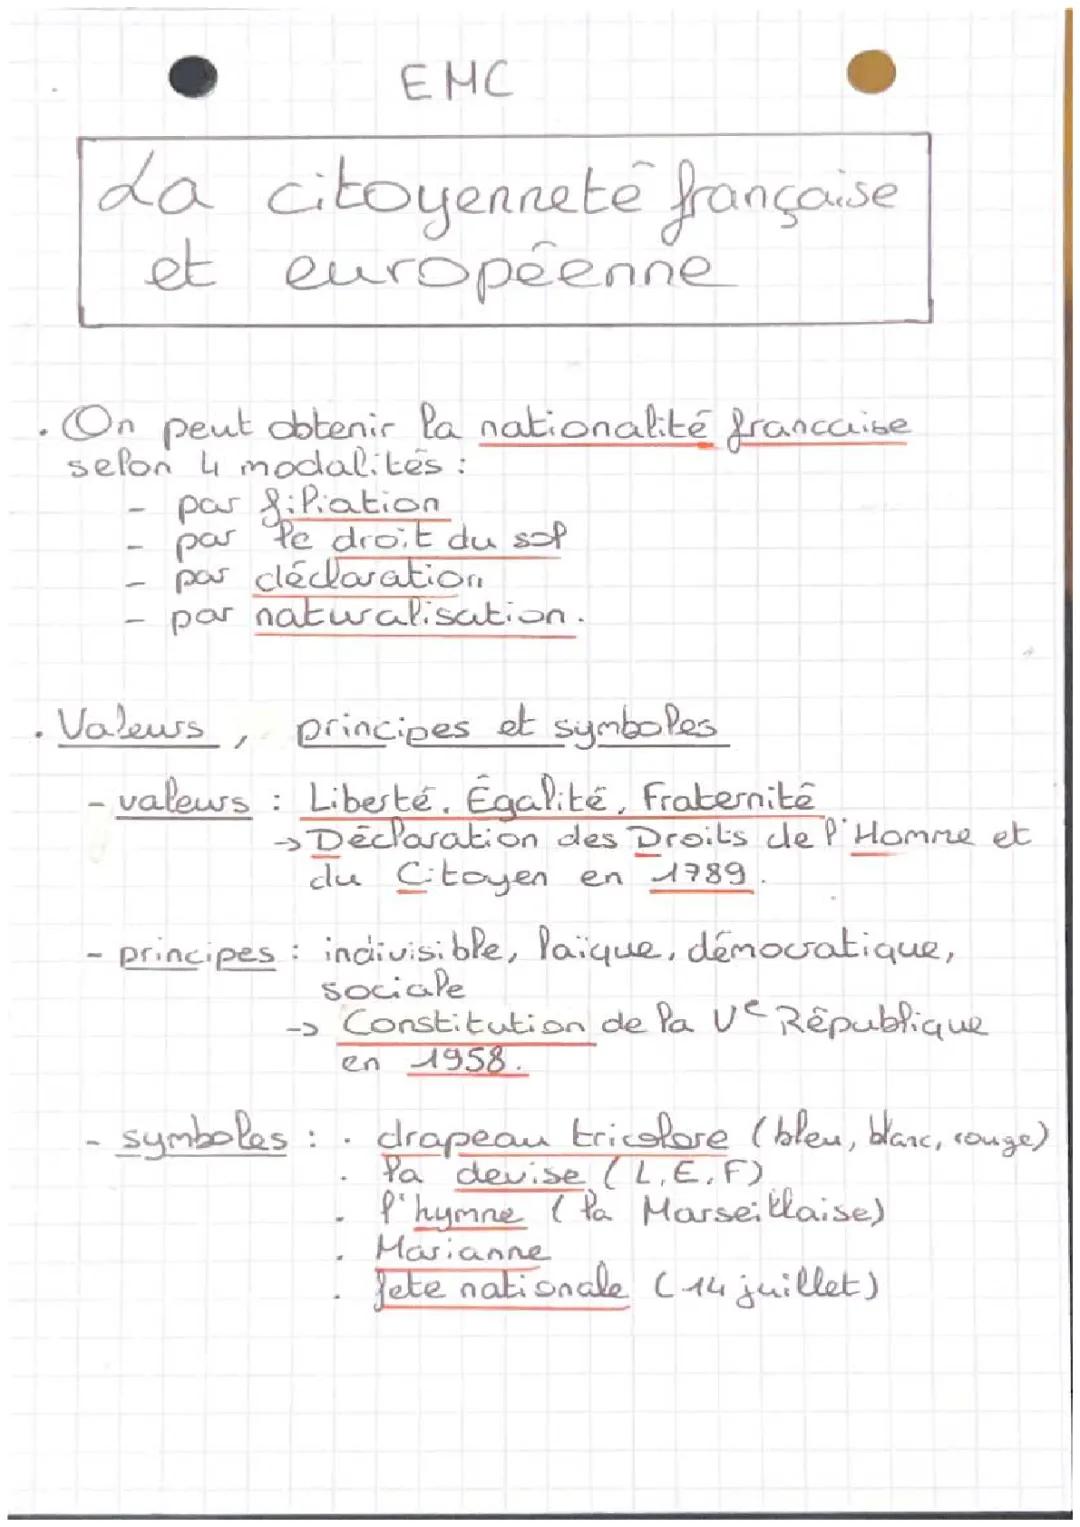 EMC
La citoyenneté française
et européenne
. On peut obtenir la nationalité francaise
selon 4 modalités :
- par filiation
- par le droit du sol
- par déclaration
- par naturalisation.
. Valeurs, principes et symboles
- valeurs : Liberté, Égalité, Fraternité
-> Déclaration des Droits de l'Homme et
du Citoyen en 1789.
- principes : indivisible, laïque, démocratique,
sociale
-> Constitution de la Ve République
en 1958.
- symboles : . drapeau tricolore (bleu, blanc, rouge)
. la devise (L, E, F)
. l'hymne (la Marseillaise)
. Marianne
. fete nationale (14 juillet)